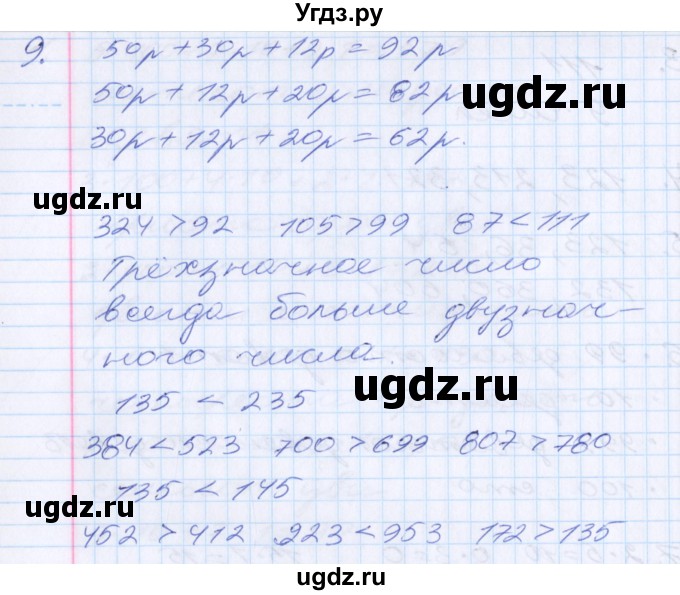 Угдз.ру
9. 50р + 30р + 12р = 92р
50р + 12р + 20р = 82р
ugdz.ru
30р + 12р + 20р = 62р.
ugdz.ru
324 > 92 105 > 99 87 < 111
Трёхзначное число
всегда больше двузнач-
ного числа.
ugdz.ru
135 < 235
384 < 523 700 > 699 807 > 780
135 < 145
ugdz.ru
452 > 412 223 < 953 172 > 135
ugdz.ru